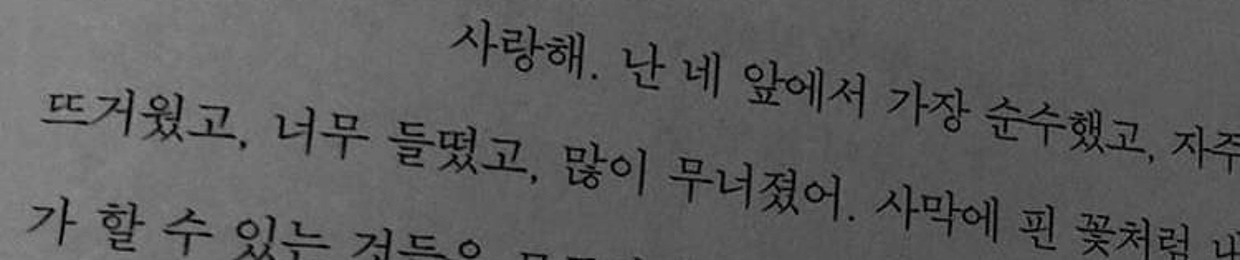 사랑해. 난 네 앞에서 가장 순수했고, 자주
뜨거웠고, 너무 들떴고, 많이 무너졌어. 사막에 핀 꽃처럼 내
가 할 수 있는 것들을